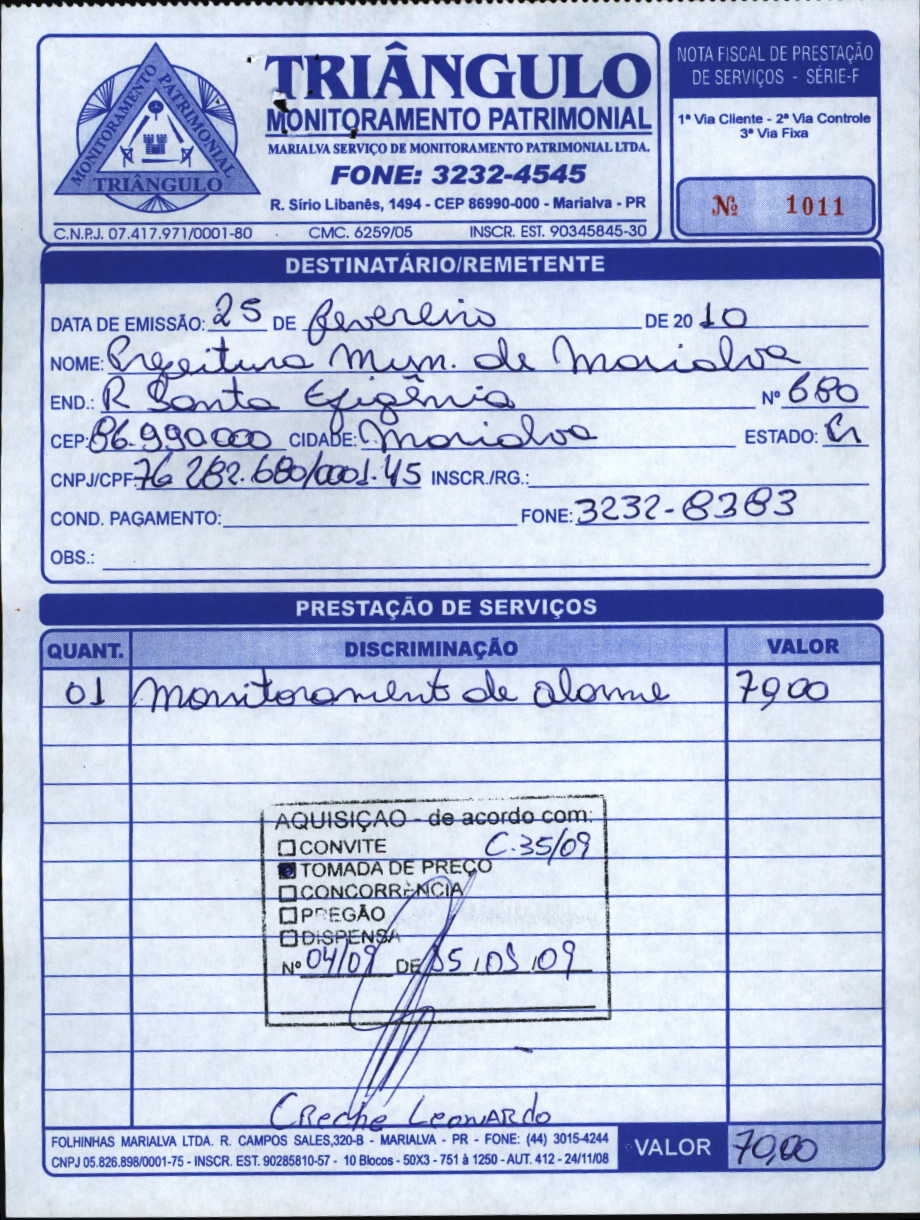 MONITORAMENTO PATRIMONIAL
TRIÂNGULO
TRIÂNGULO
MONITORAMENTO PATRIMONIAL
MARIALVA SERVIÇO DE MONITORAMENTO PATRIMONIAL LTDA.
FONE: 3232-4545
R. Sírio Libanês, 1494 - CEP 86990-000 - Marialva - PR
C.N.P.J. 07.417.971/0001-80 CMC. 6259/05 INSCR. EST. 90345845-30
NOTA FISCAL DE PRESTAÇÃO
DE SERVIÇOS - SÉRIE-F
1ª Via Cliente - 2ª Via Controle
3ª Via Fixa
Nº 1011
DESTINATÁRIO/REMETENTE
DATA DE EMISSÃO: 25 DE fevereiro DE 20 10
NOME: Prefeitura Mum. de Marialva
END.: R Santa Efigênia Nº 680
CEP: 86.990000 CIDADE: Marialva ESTADO: Pr
CNPJ/CPF: 76 282.680/0001.45 INSCR./RG.:
COND. PAGAMENTO: FONE: 3232-8383
OBS.:
PRESTAÇÃO DE SERVIÇOS
QUANT. DISCRIMINAÇÃO VALOR
01 Monitoramento de alarme 70,00
AQUISIÇÃO - de acordo com:
CONVITE C.35/09
TOMADA DE PREÇO
CONCORRÊNCIA
PREGÃO
DISPENSA
Nº 04/09 DE 05/03/09
Creche Leonardo
FOLHINHAS MARIALVA LTDA. R. CAMPOS SALES,320-B - MARIALVA - PR - FONE: (44) 3015-4244
CNPJ 05.826.898/0001-75 - INSCR. EST. 90285810-57 - 10 Blocos - 50X3 - 751 à 1250 - AUT. 412 - 24/11/08
VALOR 70,00